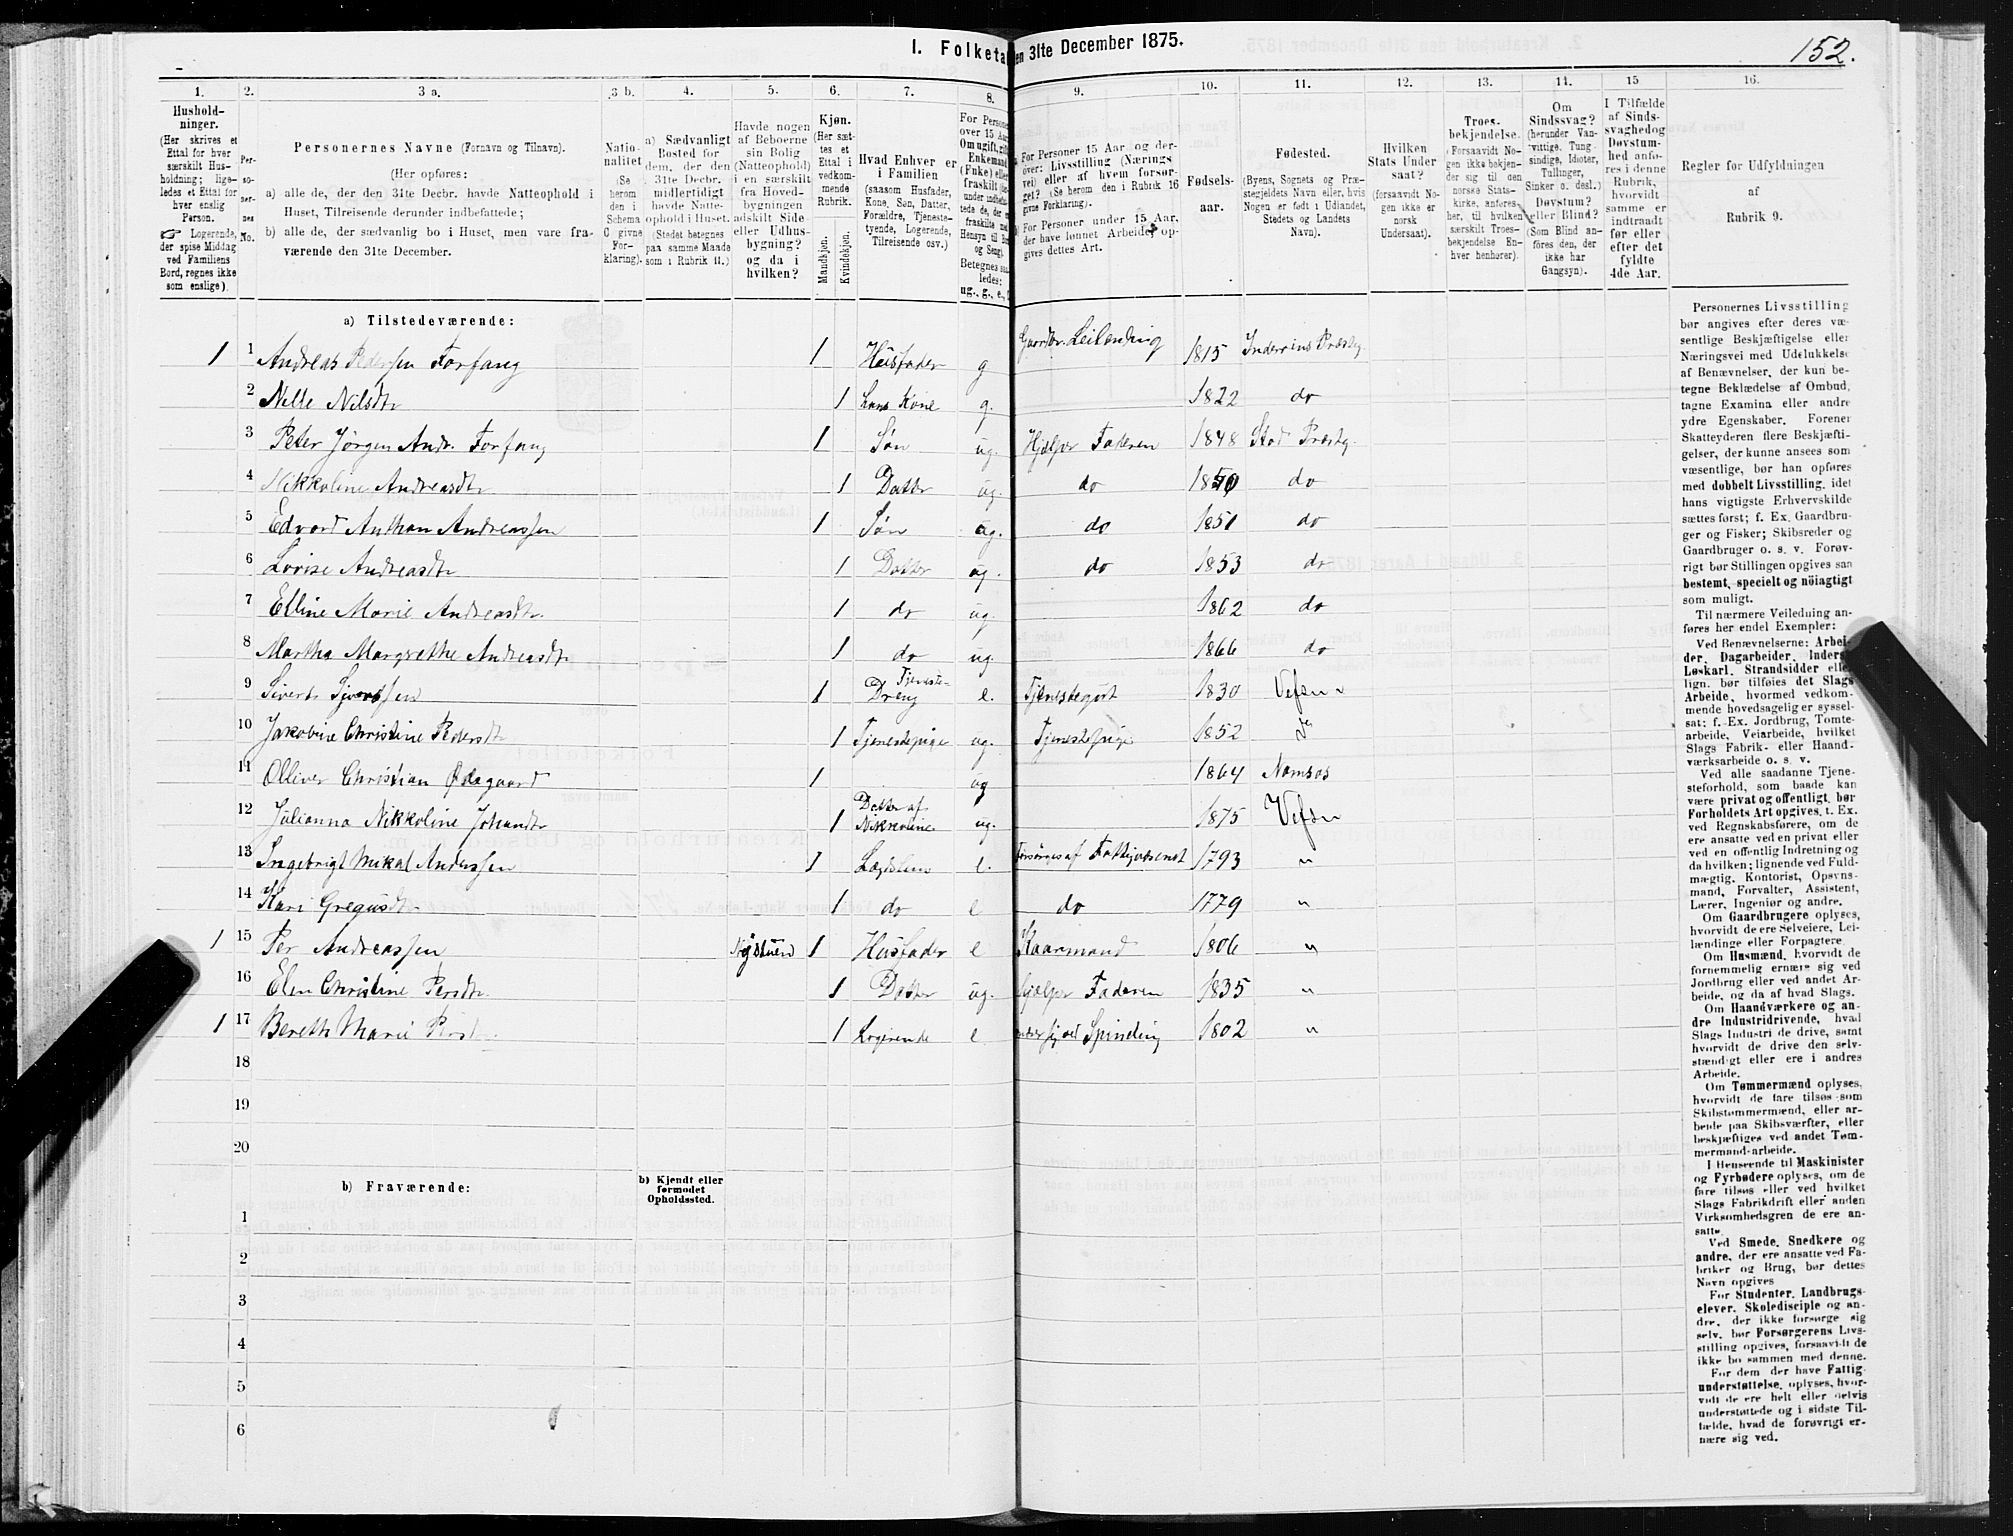 I. Folketæ
en 31te December 1875.
152.
1. 2. 3 a. 3 b. 4. 5. 6. 7. 8. 9. 10. 11. 12. 13. 14. 15 16.
Hushold-
ninger.
(Her skrives et
Ettal for hver
særskilt Hus-
holdning; lige-
ledes et Ettal for
hver enslig
Person.
☞ Logerende,
der spise Middag
ved Familiens
Bord, regnes ikke
som enslige).
Per-
so-
ner-
nes
No.
Personernes Navne (Fornavn og Tilnavn).
(Her opføres:
a) alle de, der den 31te Decbr. havde Natteophold i
Huset, Tilreisende derunder indbefattede;
b) alle de, der sædvanlig bo i Huset, men vare fra-
værende den 31te December.
Natio-
nalitet
(Se
herom
den i
Schema
C givne
For-
klaring).
a) Sædvanligt
Bosted for
dem, der den
31te Decbr.
midlertidigt
havde Natte-
ophold i Huset.
(Stedet betegnes
paa samme Maade
som i Rubrik 11.)
Havde nogen
af Beboerne
sin Bolig
(Natteophold)
i en særskilt
fra Hoved-
bygningen
adskilt Side-
eller Udhus-
bygning?
og da i
hvilken?
Kjøn.
(Her sæt-
tes et
Ettal i
vedkom-
mende
Rubrik.
Mandkjøn.
Kvindekjøn.
Hvad Enhver er
i Familien
(saasom Husfader,
Kone, Søn, Datter,
Forældre, Tjeneste-
tyende, Logerende,
Tilreisende osv.)
For Persone
over 15 Aar
Om ugift, gift
Enkemand
(Enke) elle
fraskilt
Betegnes saa
ledes:
ug., g., e.,
a) For Personer 15 Aar og der-
over: Livsstilling (Nærings
vei) eller af hvem forsør-
get? (Se herom den i Rubrik 16
givne Forklaring).
b) For Personer under 15 Aar,
der have lønnet Arbeide, op-
gives dettes Art.
Fødsels-
aar.
Fødested.
(Byens, Sognets og Præ-
stegjeldets Navn eller, hvis
Nogen er født i Udlandet,
Stedets og Landets
Navn).
Hvilken
Stats Under
saat?
(forsaavidt No-
gen ikke er
norsk
Undersaat).
Troes-
bekjendelse.
(Forsaavidt No-
gen ikke bekjen-
der sig til den
norske Stats-
kirke, anføres
her, til hvilken
særskilt Troes-
bekjendelse En-
hver henhører).
Om
Sindssvag?
(herunder Van-
vittige, Tung-
sindige, Idioter,
Tullinger,
Sinker o. desl.)
Døvstum?
eller Blind?
(Som Blind an-
føres den, der
ikke har
Gangsyn).
I Tilfælde
af Sinds-
svaghed og
Døvstum-
hed anfø-
res i denne
Rubrik,
hvorvidt
samme er
indtraadt
før eller
efter det
fyldte
4de Aar.
Regler for Udfyldningen
af
Rubrik 9.
a) Tilstedeværende:
1 1 Andreas Pedersen Forfang 1 Husfader g Gaardbr. Leilending 1815 Inderøens Præstg
2 Nille Nilsdtr 1 hans Kone g. 1822 do
3 Peter Jørgen Andr. Forfang 1 Søn ug. Hjælper Faderen 1848 Stod Præstg.
4 Nikkoline Andreasdtr 1 Datter ug. do 1850 do
5 Edvard Anthon Andreassen 1 Søn ug. do 1851 do
6 Lovise Andreasdtr 1 Datter ug. do 1853 do
7 Elline Marie Andreasdtr. 1 do ug. 1862 do
8 Martha Margrethe Andreasdtr 1 do ug. 1866 do
9 Sivert Sjversen 1 Tjeneste-Dreng e. Tjenestegut 1830 Vefsn
10 Jakobine Christine Pedersdtr 1 Tjenestepige ug. Tjenestepige 1852
11 Olliver Christian Ødegaard 1 ug 1864 Namsos
12 Julianna Nikkoline Johansdtr 1 Datter af Nikkoline ug. 1875 Vefsn
13 Ingebrigt Mikal Anderssen 1 Lægdslem e. Forsørges af Fattigvæsenet 1793 "
14 Kari Gregusdtr 1 do e do 1779 "
1 15 Per Andreassen Nystuen 1 Husfader e Kaarmand 1806 "
16 Elen Christine Persdtr 1 Datter ug. Hjælper Faderen 1835 "
1 17 Bereth Marie Persdtr 1 Logerende e. Spinding 1802 "
18
19
20
b) Fraværende:
b) Kjendt eller
formodet
Opholdssted.
1
2
3
4
5
6
Personernes Livsstilling
bør angives efter deres væ-
sentlige Beskjæftigelse eller
Næringsvei med Udelukkelse
af Benævnelser, der kun be-
tegne Beklædelse af Ombud,
tagne Examina eller andre
ydre Egenskaber. Forener
Skatteyderen flere Beskjæfti-
gelser, der kunne ansees som
væsentlige, bør han opføres
med dobbelt Livsstilling, idet
hans vigtigste Erhvervskilde
sættes først; f. Ex. Gaardbru-
ger og Fisker; Skibsreder og
Gaardbruger o. s. v. Forøv-
rigt bør Stillingen opgives saa
bestemt, specielt og nöiagtigt
som muligt.
Til nærmere Veiledning an-
føres her endel Exempler:
Ved Benævnelserne: Arbei-
der, Dagarbeider, Inderst,
Løskarl, Strandsidder eller
lign. bør tilføies det Slags
Arbeide, hvormed vedkom-
mende hovedsagelig er syssel-
sat; f. Ex. Jordbrug, Tomte-
arbeide, Veiarbeide, hvilket
Slags Fabrik- eller Haand-
værksarbeide o. s. v.
Ved alle saadanne Tjene-
steforhold, som baade kan
være privat og offentligt, bør
Forholdets Art opgives, t. Ex.
ved Regnskabsførere, om de
ere ansatte ved en privat eller
ved en offentlig Indretning og
da hvilken; lignende ved Fuld-
mægtig, Kontorist, Opsyns-
mand, Forvalter, Assistent,
Lærer, Ingeniør og andre.
Om Gaardbrugere oplyses,
hvorvidt de ere Selveiere, Lei-
lændinge eller Forpagtere.
Om Husmænd, hvorvidt de
fornemmelig ernære sig ved
Jordbrug eller ved andet Ar-
beide, og da af hvad Slags.
Om Haandværkere og an-
dre Industridrivende, hvad
Slags Industri de drive, samt
hvorvidt de drive den selv-
stændigt eller ere i andres
Arbeide.
Om Tømmermænd oplyses,
hvorvidt de fare tilsøs som
Skibstømmermænd, eller ar-
beide paa Skibsværfter, eller
beskjæftiges ved andet Tøm-
mermand-arbeide.
I Henseende til Maskinister
og Fyrbødere oplyses, om de
fare tilsøs eller ved hvilket
Slags Fabrikdrift eller anden
Virksomhedsgren de ere an-
satte.
Ved Smede, Snedkere og
andre, der ere ansatte ved Fa-
briker og Brug, bør dettes
Navn opgives
For Studenter, Landbrugs-
elever, Skoledisciple og an-
dre, der ikke forsørge sig
selv, bør Forsørgerens Livs-
stilling opgives, forsaavidt de
ikke bo sammen med denne.
For dem, der have Fattig-
understøttelse, oplyses, hvor-
vidt de ere helt eller delvis
understøttede og i sidste Til-
fælde, hvad de forøvrigt er-
nære sig ved.